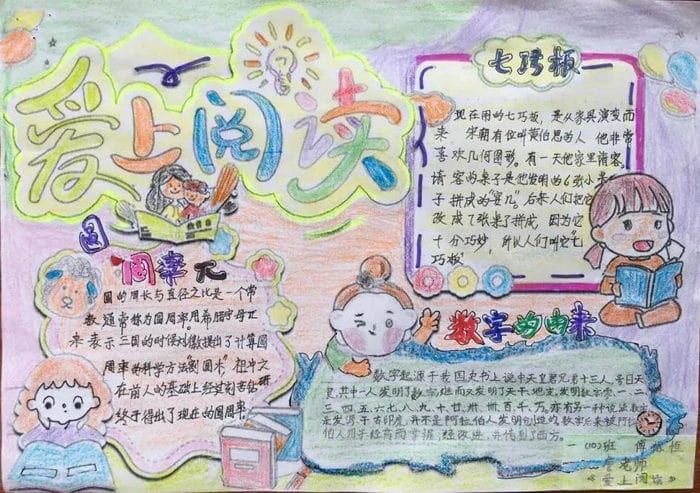 爱上阅读
七巧板
现在用的七巧板,是从家具演变而
来 宋朝有位叫黄伯思的人 他非常
喜欢几何图形,有一天他家里请客,
请客的桌子是他发明的6张小
子拼成的
后来人们把它
改成了张桌子拼成,因为它
十分巧妙,所以人们叫它"七
巧板"
圆
圆的周长与直径之比是一个常
数 通常称为圆周率用希腊字母π
来表示 三国的时候刘徽提出了计算圆
周率的科学方法"割圆术"祖冲之
在前人的基础上经过刻苦钻研
终于得出了现在的圆周率
数字的由来
数字起源于我国史书上说中天皇君兄弟十三人,号日天
皇,其中一人发明了数字,继而又发明了天干、地支,发明数字零、一、二
三、四、五、六、七、八、九、十、廿、卅、卌、百、千、万,亦有另一种说法
源于古印度,并不是阿拉伯人发明创造的数字后来被阿
伯人用于经商而掌握,经改进,并传到了西方。
(10)班 傅 恒
老师
《爱上阅读》